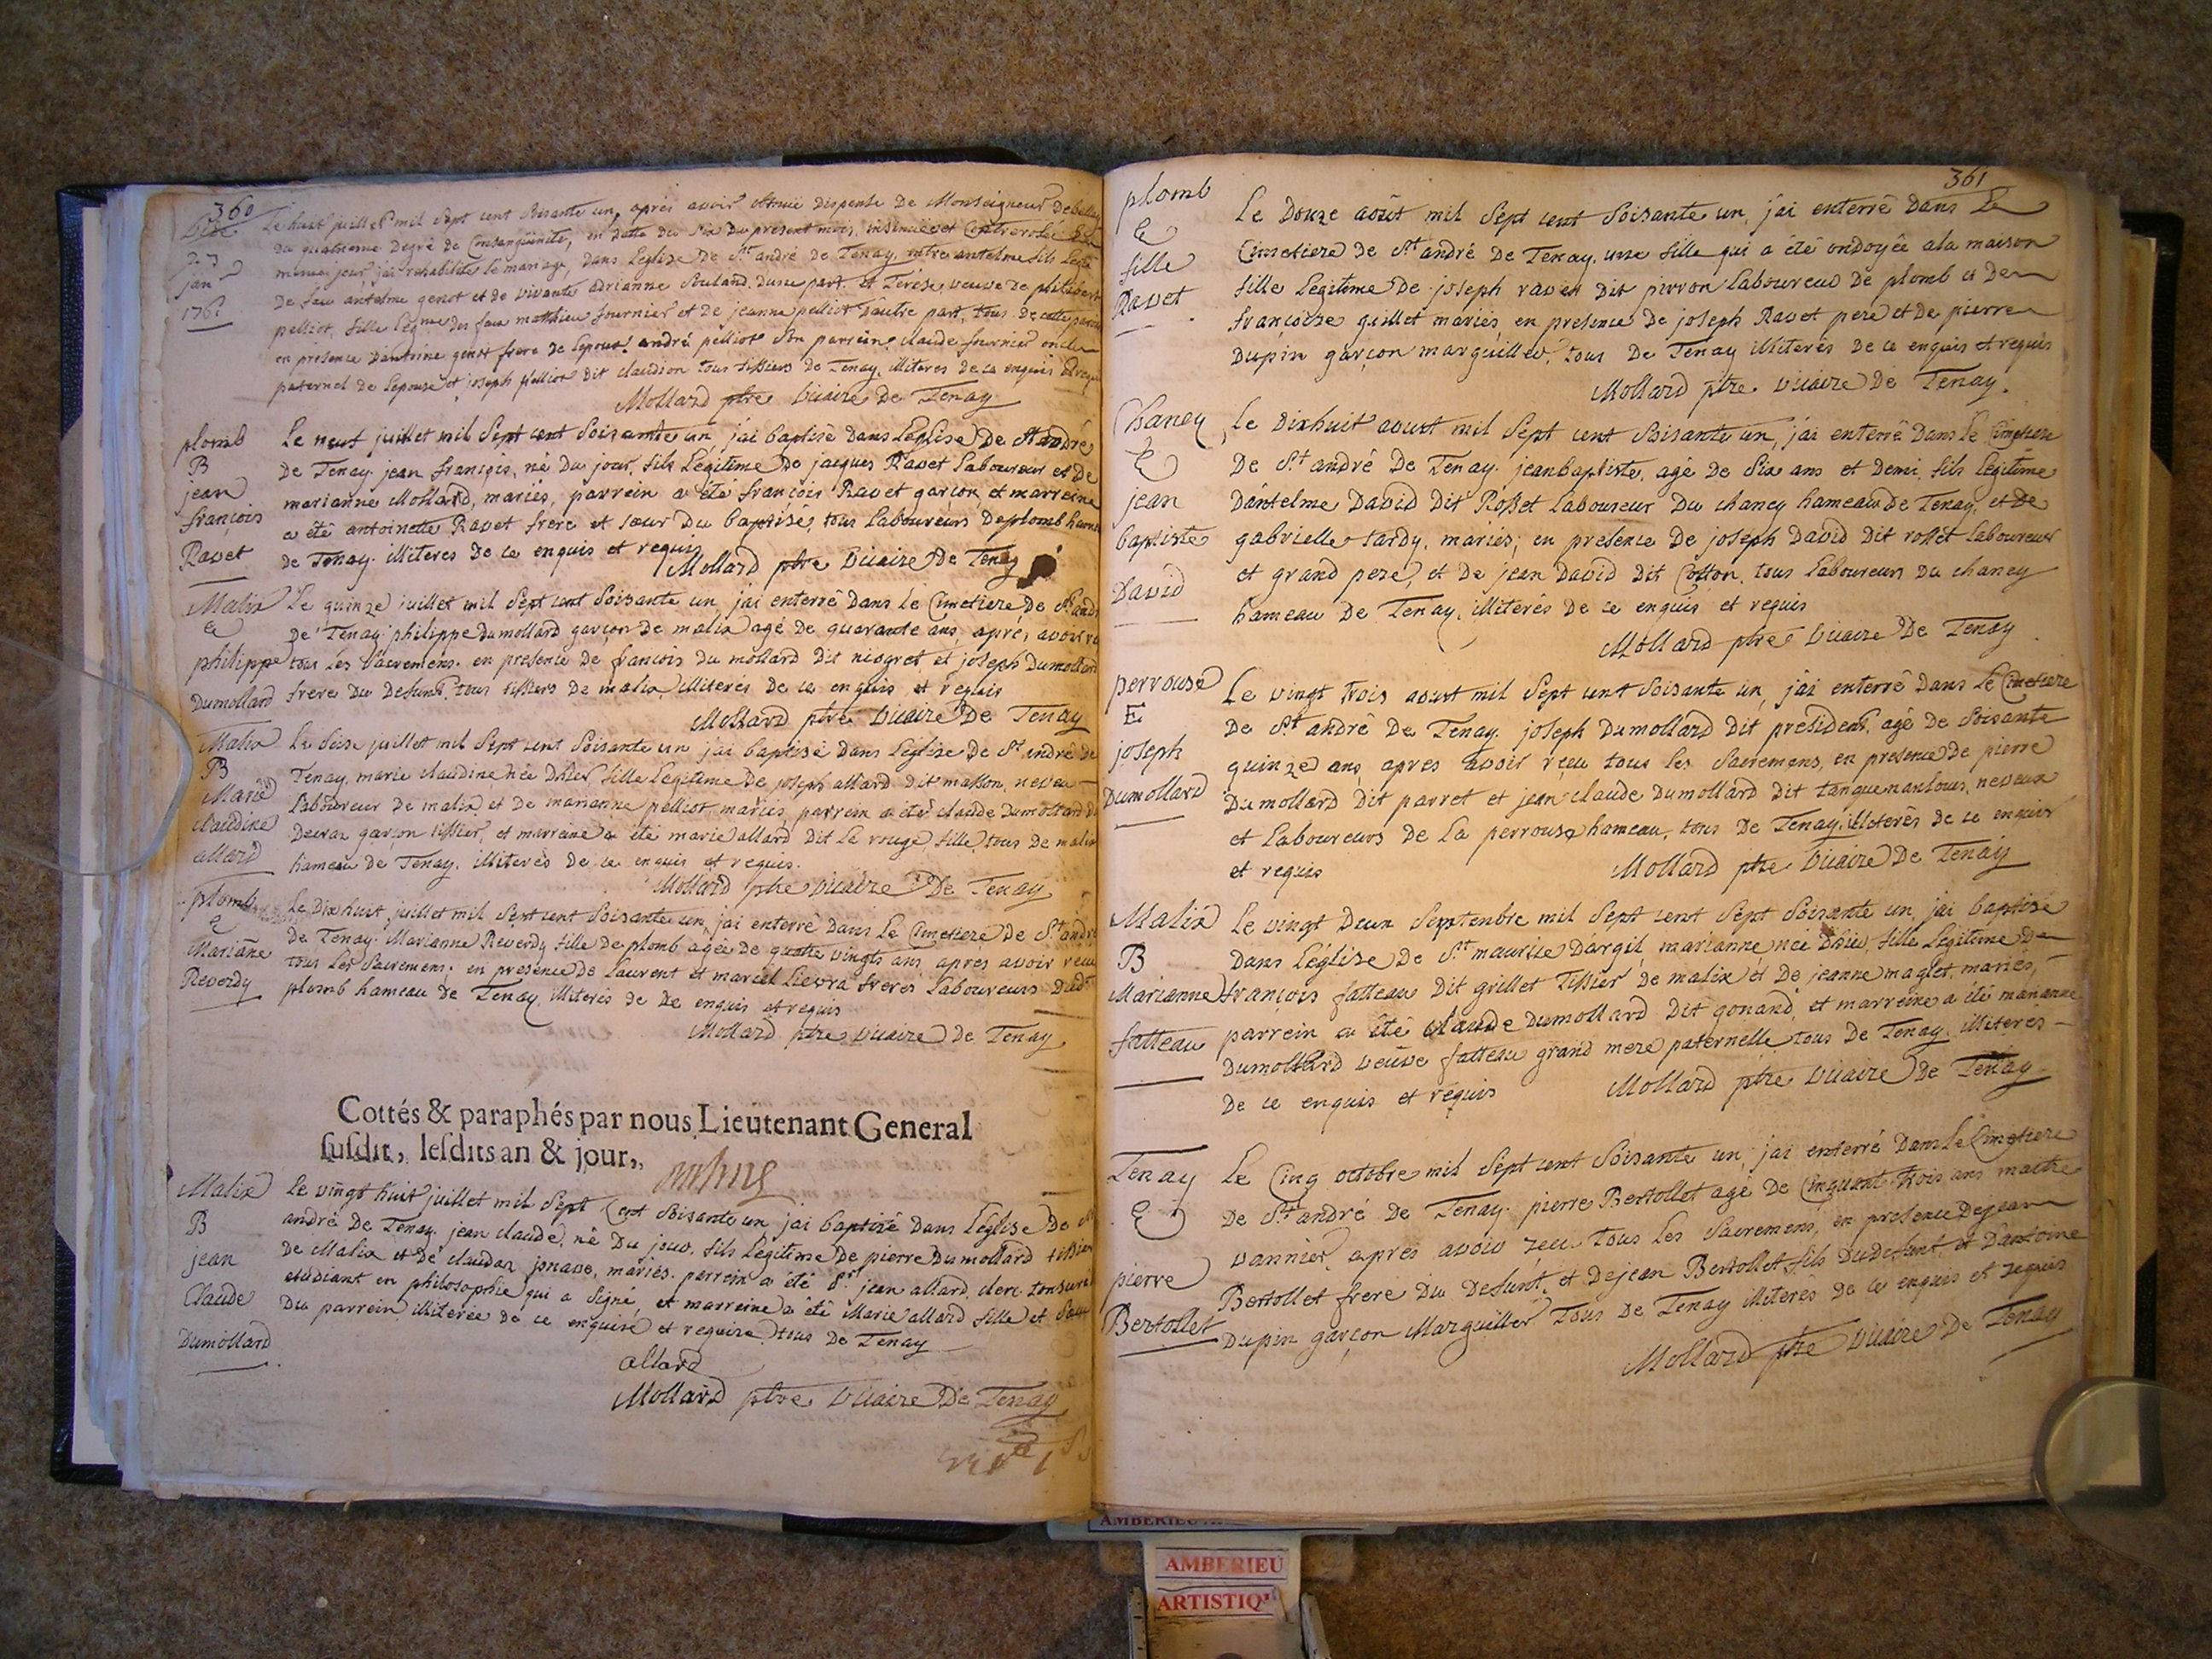 360
Le huit juillet mil Sept cent Soisante un, aprés avoir obtenu dispense de Monseigneur Debelley
du quatrieme degré de Consanguinité, en datte du Six du present mois, insinuée et Controrolée
meme jour, jai rehabilité le mariage, dans L'eglise De St andré de Tenay, entre antelme fils
de feu antelme genot et de vivante adrianne Rouland, dune part, et Térése veuve de philibert
pelliot, fille Legme des feux matthieu fournier et de jeanne pelliot Dautre part, tous de cette
en présence Dantoine genot frere de Lepoux, andré pelliot Son parrein, claude fournier oncle
paternel de Lepouse et joseph pelliot dit claudion tous tissiers de Tenay, illiteres de ce enquis et
Mollard ptre vicaire de Tenay
plomb
B
jean
françois
Ravet
Le neuf juillet mil Sept cent Soisante un jai baptisé dans L'eglise De St andré
de Tenay. jean françois, né du jour, fils Legitime De jacques Ravet Laboureur et De
marianne Mollard, mariés, parrein a été françois Ravet garçon, et marreine
a été antoinette Ravet frere et sœur Du baptisé, tous Laboureurs de plomb
de Tenay. illiteres de ce enquis et requis
Mollard ptre vicaire De Tenay
Malix
E
philippe
Dumollard
Le quinze juillet mil Sept cent Soisante un, jai enterré Dans Le Cimetiere De St
De Tenay philippe dumollard garçon de malix agé de quarante ans, aprés avoir
tous Les Sacremens. en presence de francois du mollard dit niogret et joseph Dumollard
frere Du Defunt, tous tissiers de malix illiterés de ce enquis et requis
Mollard ptre vicaire De Tenay
Malix
B
Marie
claudine
allard
Le Seise juillet mil Sept cent Soisante un jai baptisé dans L'église De St andré de
Tenay, marie claudine née Dhier, fille Legitime De joseph allard dit masson, neveu
Laboureur de malix et de marianne pelliot mariés, parrein a été claude Dumollard
garçon tissier, et marreine a été marie allard dit Le rouge, fille, tous De malix
hameau de Tenay. illiterés de ce enquis et requis.
Mollard ptre vicaire De Tenay
plomb
E
Marianne
Reverdy
Le Dixhuit juillet mil Sept cent Soisante un, jai enterré dans Le Cimetiere De St andré
de Tenay. Marianne Reverdy fille de plomb agée de quatre vingts ans apres avoir
tous Les Sacremens. en presence de Laurent et marcel Lievra freres Laboureurs
plomb hameau de Tenay, illiterés de De enquis et requis
Mollard ptre vicaire De Tenay
Cottés & paraphés par nous Lieutenant General
susdit, lesdits an & jour,
Malix
B
jean
Claude
Dumollard
Le vingt huit juillet mil Sept Cent Soisante un jai baptizé dans L'eglise De St
andré De Tenay. jean claude, né Du jour, fils Legitime De pierre Dumollard tissier
De Malix et de claudaz jonave, mariés. parrein a été Sr jean allard, clerc tonsuré
etudiant en philosophie qui a Signé, et marreine a été Marie allard fille et Sœur
Du parrein illiterée de ce enquise et requise tous De Tenay
allard
Mollard ptre vicaire De Tenay
361
plomb
E
fille
Ravet
Le Douze août mil Sept cent Soisante un, jai enterré dans Le
Cimetiere de St andré De Tenay. une fille qui a été ondoyée a la maison
fille Legitime De joseph ravet dit pirron Laboureur De plomb et De
françoise quillet mariés, en presence De joseph Ravet pere et de pierre
Dupin garçon marguillier, tous De Tenay illiterés De ce enquis et requis
Mollard ptre vicaire De Tenay.
Chaney
E
jean
baptiste
David
Le Dixhuit aoust mil Sept cent Soisante un, jai enterré Dans le Cimetiere
De St andré De Tenay. jeanbaptiste, agé de Six ans et Demi, fils Legitime
Dantelme David Dit Rosset Laboureur Du chaney hameau de Tenay, et De
gabrielle tardy, mariés; en presence De joseph David Dit rosset Laboureur
et grand pere, et de jean David Dit Cotton, tous Laboureurs Du chaney
hameau De Tenay, illiterés De ce enquis et requis
Mollard ptre vicaire De Tenay
perrouse
E
joseph
Dumollard
Le vingt trois aoust mil Sept cent Soisante un, jai enterré dans Le Cimetiere
De St andré De Tenay. joseph Dumollard Dit président, agé De Soisante
quinze ans, apres avoir reçu tous les Sacremens, en presence De pierre
Dumollard Dit parret et jean claude Dumollard Dit tanquenanlours, neveux
et Laboureurs de La perrouse hameau, tous De Tenay, illiterés De ce enquis
et requis
Mollard ptre vicaire De Tenay
Malix
B
Marianne
fatteau
Le vingt Deux Septembre mil Sept cent Sept Soisante un, jai baptisé
Dans L'église De St maurice Dargil, marianne, née Dhier, fille Legitime De
françois fatteau Dit grillet tissier de malix et De jeanne maglet, mariés,
parrein a été claude Dumollard Dit gonand, et marreine a été marianne
Dumollard veuve fatteau grand mere paternelle tous De Tenay, illiterés
De ce enquis et requis
Mollard ptre vicaire De Tenay
Tenay
E
pierre
Bertollet
Le Cinq octobre mil Sept cent Soisante un, jai enterré Dans Le Cimetiere
De St andré De Tenay. pierre Bertollet agé De Cinquant trois ans maitre
vannier, apres avoir reçu tous Les Sacremens, en presence De jean
Bertollet frere Du Defunt, et De jean Bertollet fils du defunt, et D'antoine
Dupin garçon Marguillier tous De Tenay illiterés De ce enquis et requis
Mollard ptre vicaire De Tenay
AMBERIEU
AMBERIEU
ARTISTIQ